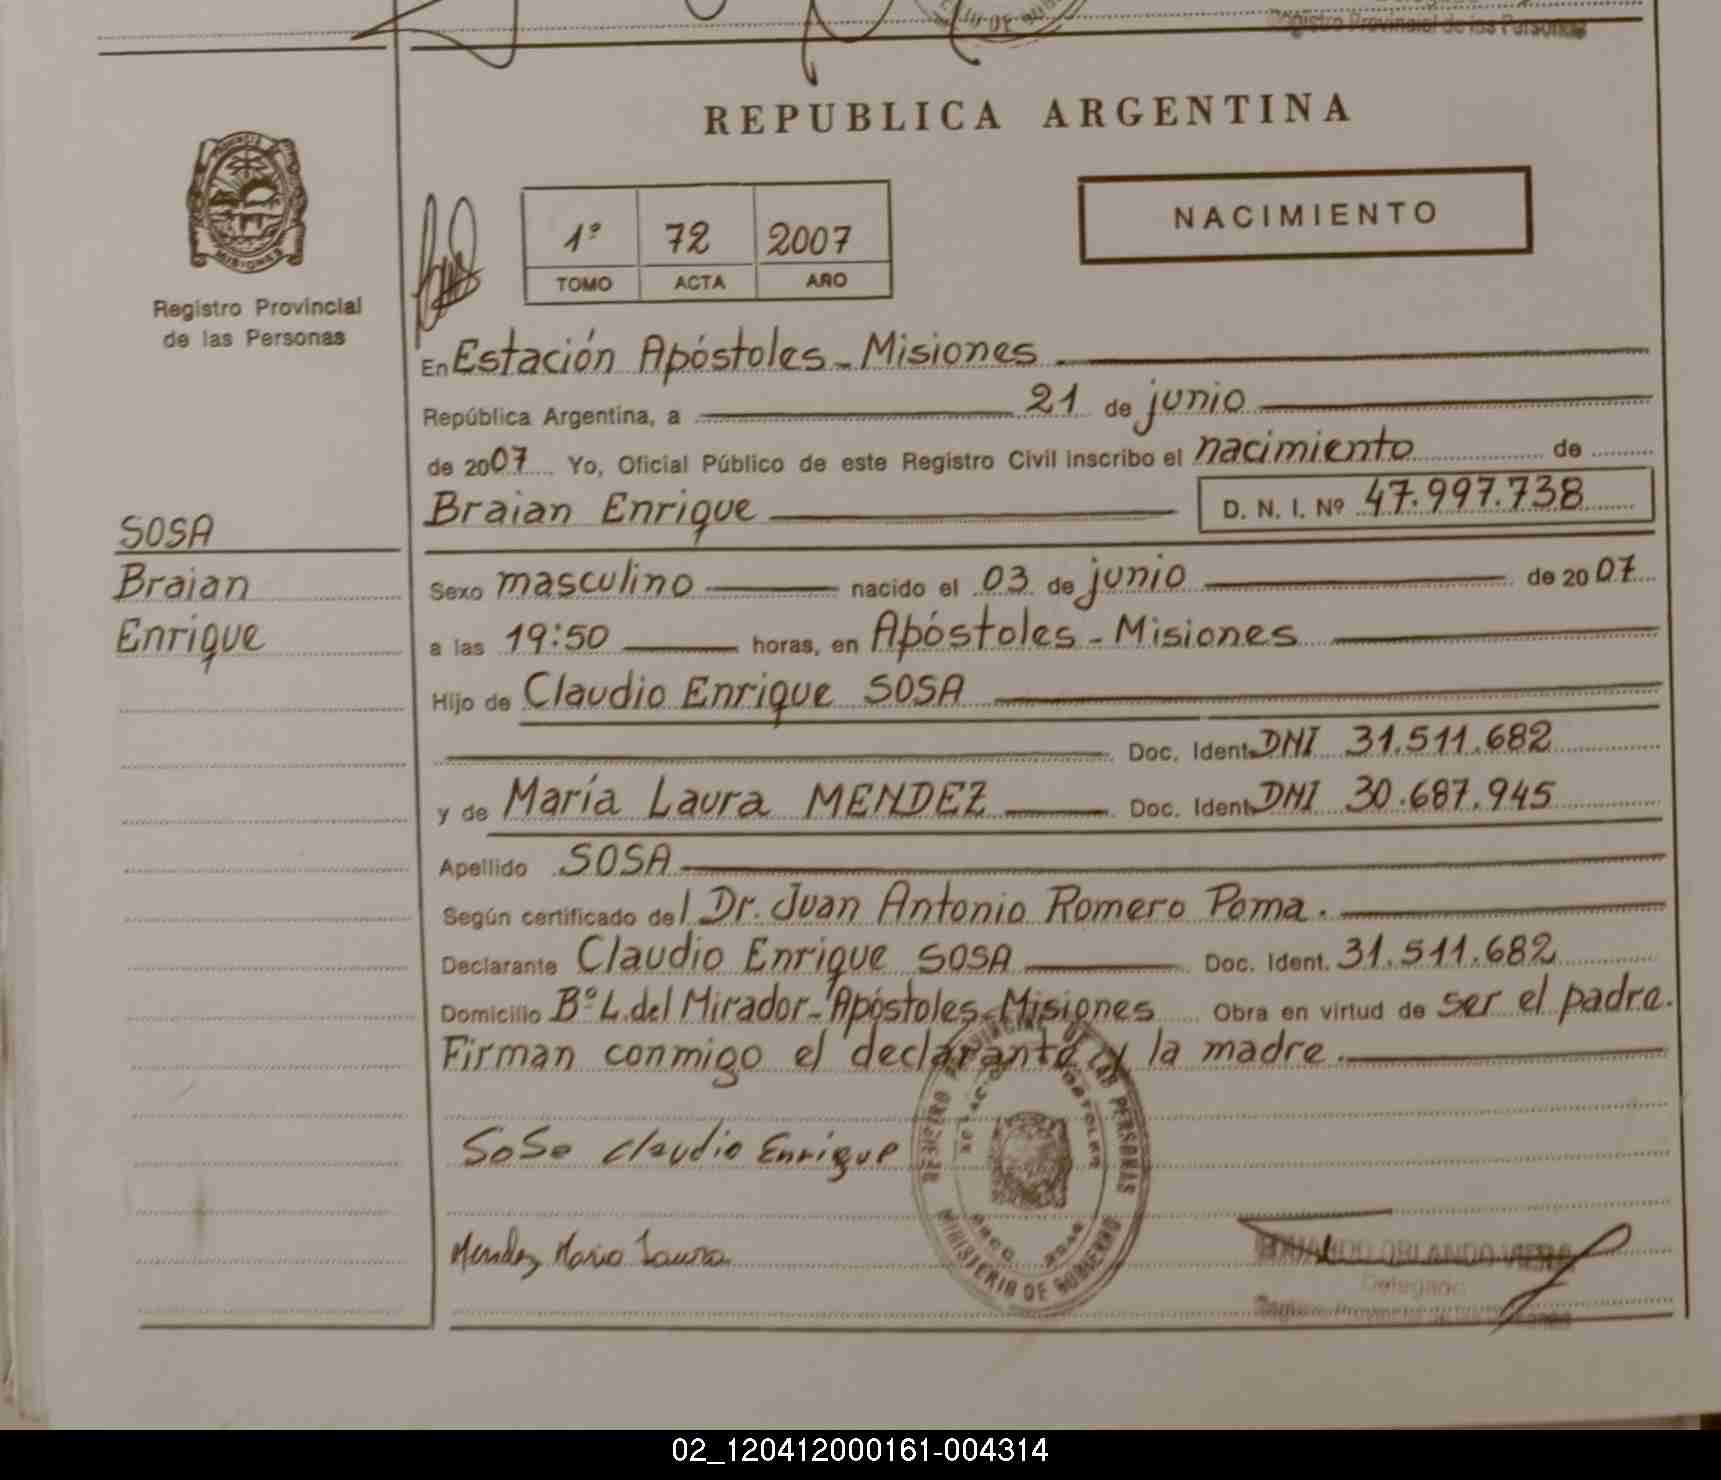 Registro Provincial de las Personas
REPUBLICA ARGENTINA
NACIMIENTO
1º 72 2007
TOMO ACTA AÑO
MISIONES
Registro Provincial
de las Personas
En Estación Apóstoles - Misiones
República Argentina, a 21 de junio
de 2007 Yo, Oficial Público de este Registro Civil inscribo el nacimiento de
Braian Enrique D. N. I. Nº 47.997.738
SOSA
Braian
Enrique
Sexo masculino nacido el 03 de junio de 2007
a las 19:50 horas, en Apóstoles - Misiones
Hijo de Claudio Enrique SOSA
Doc. Ident. DNI 31.511.682
y de María Laura MENDEZ Doc. Ident. DNI 30.687.945
Apellido SOSA
Según certificado del Dr. Juan Antonio Romero Poma.
Declarante Claudio Enrique SOSA Doc. Ident. 31.511.682
Domicilio Bº L. del Mirador - Apóstoles - Misiones Obra en virtud de ser el padre.
Firman conmigo el declarante y la madre.
Sosa Claudio Enrique
REGISTRO PROVINCIAL DE LAS PERSONAS
MINISTERIO DE GOBIERNO
Mendez Maria Laura
ORLANDO VIERA
Delegado
Registro Provincial de las Personas
02_120412000161-004314